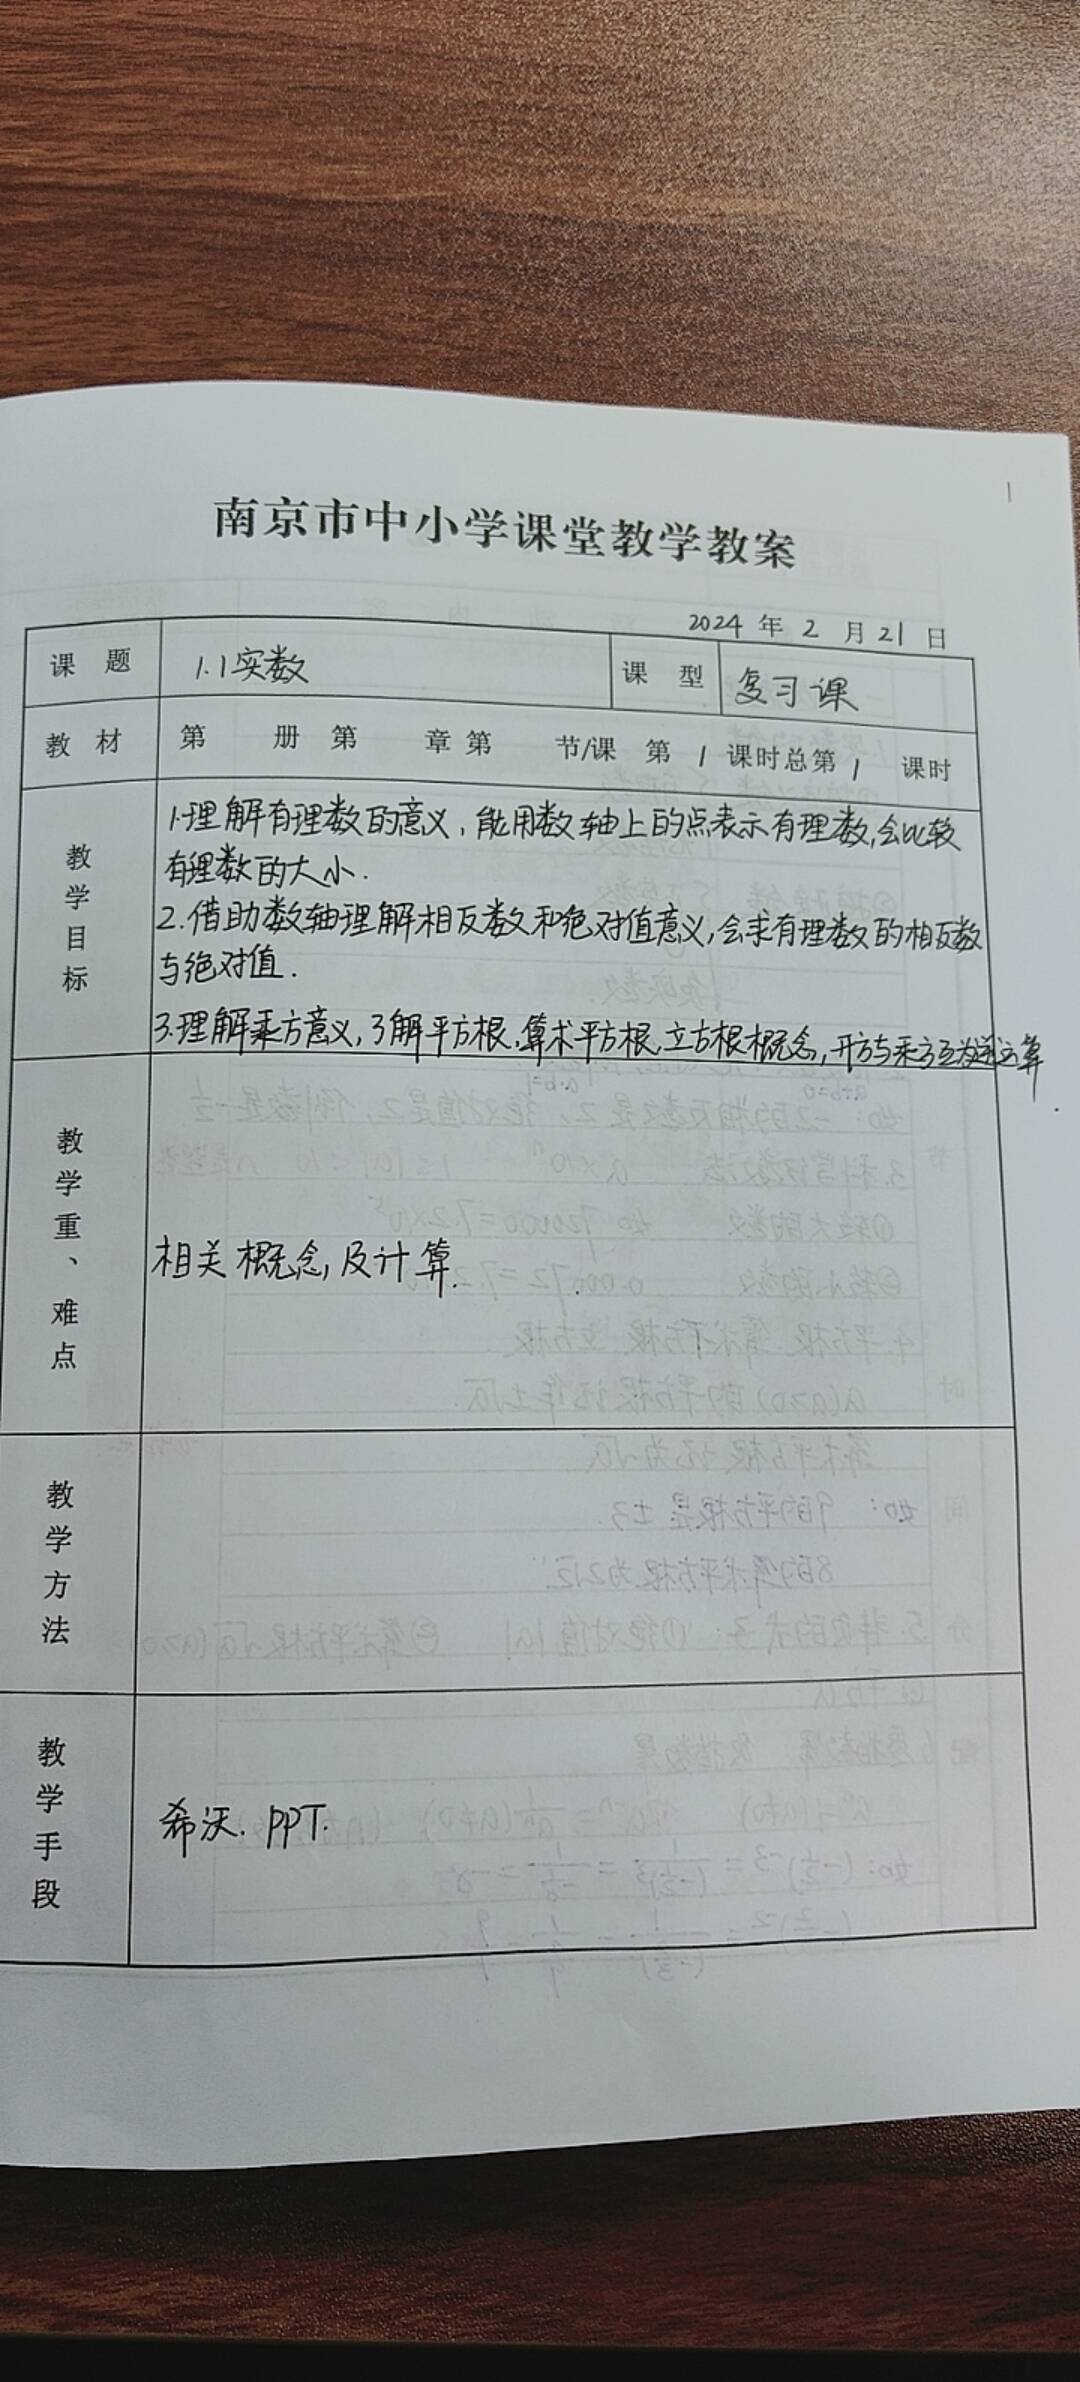 1
南京市中小学课堂教学教案
2024 年 2 月 21 日
课 题 1.1实数 课 型 复习课
教 材 第 册 第 章 第 节/课 第 1 课时总第 1 课时
教学目标
1.理解有理数的意义,能用数轴上的点表示有理数,会比较
有理数的大小.
2.借助数轴理解相反数和绝对值意义,会求有理数的相反数
与绝对值.
3.理解乘方意义,了解平方根,算术平方根,立方根概念,开方与乘方互为逆运算.
教学重、难点
相关概念,及计算.
教学方法
教学手段
希沃. PPT.